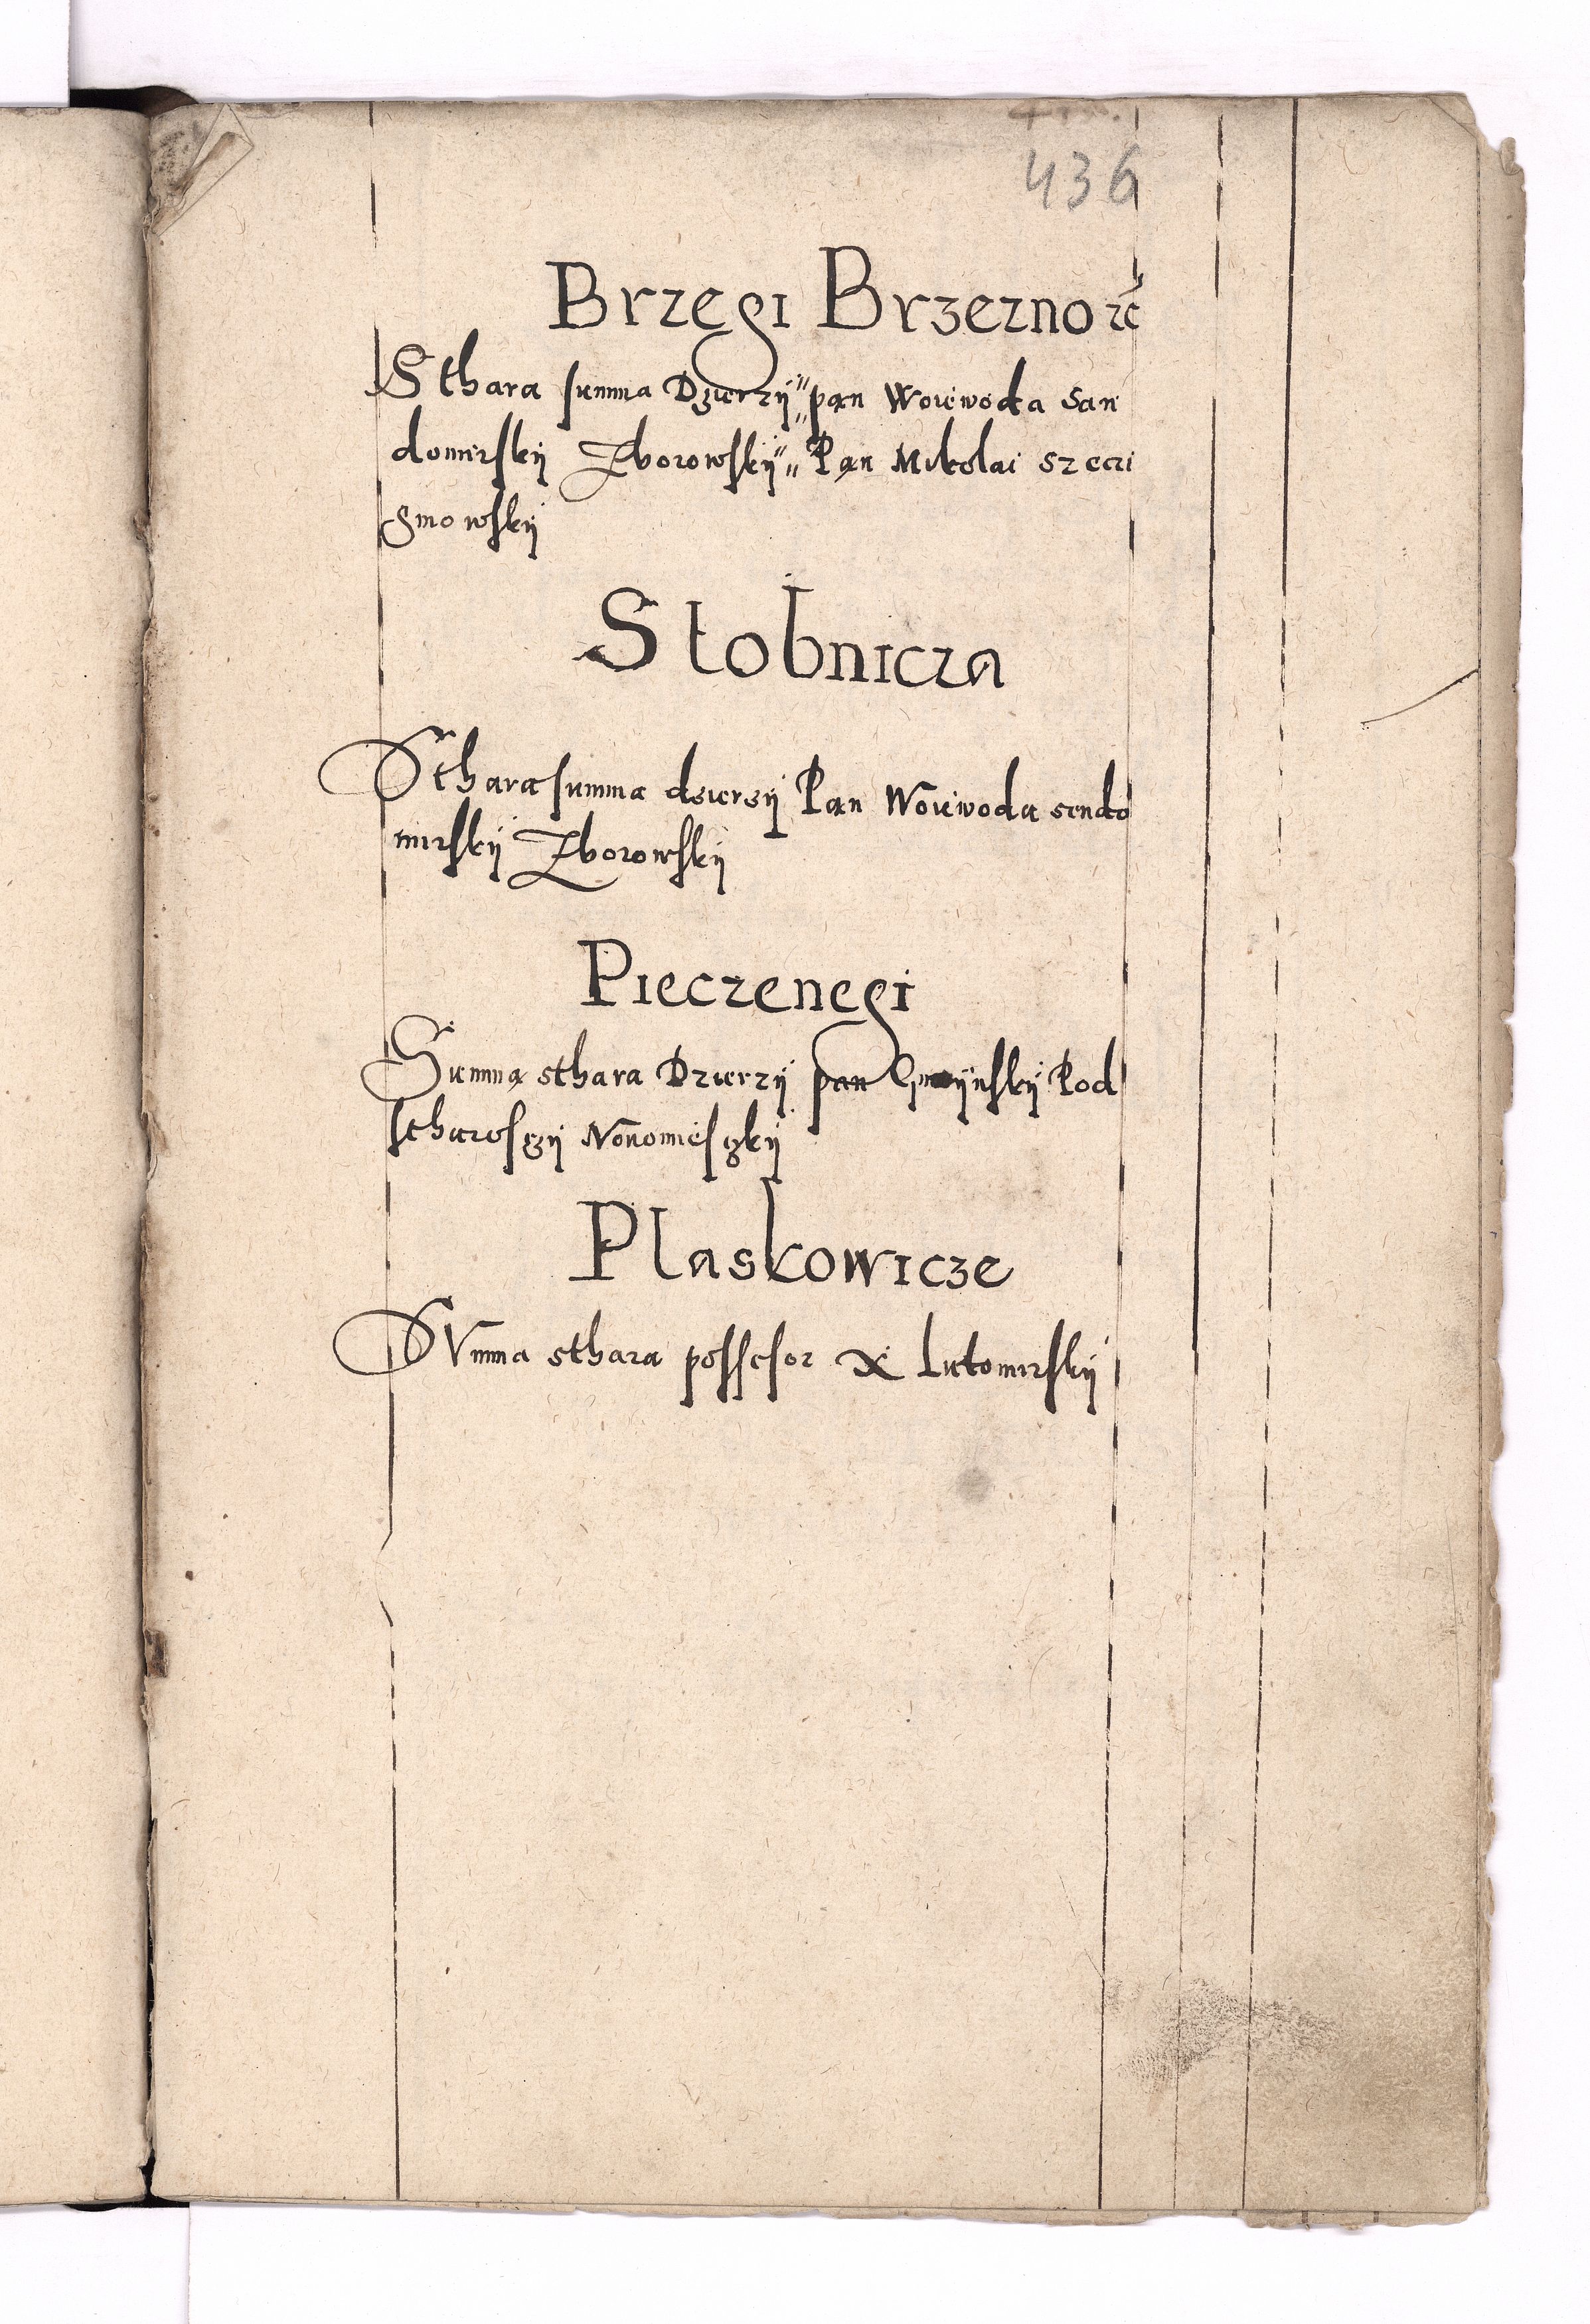 436
Brzegi Brzezno etć
Sthara summa Dzierzÿ pan Woiewoda San
domirskÿ Zborowskÿ Pan Mikolai szczi
gnowskÿ
Stobnicza
Sthara summa dzierzÿ Pan Woiewoda sendo
mirskÿ Zborowskÿ
Pieczenegi
Summa sthara Dzierzÿ pan Pod
stharosczÿ Nowomiesczkÿ
Plaskowicze
SVmma sthara possesor X Lutomirskÿ